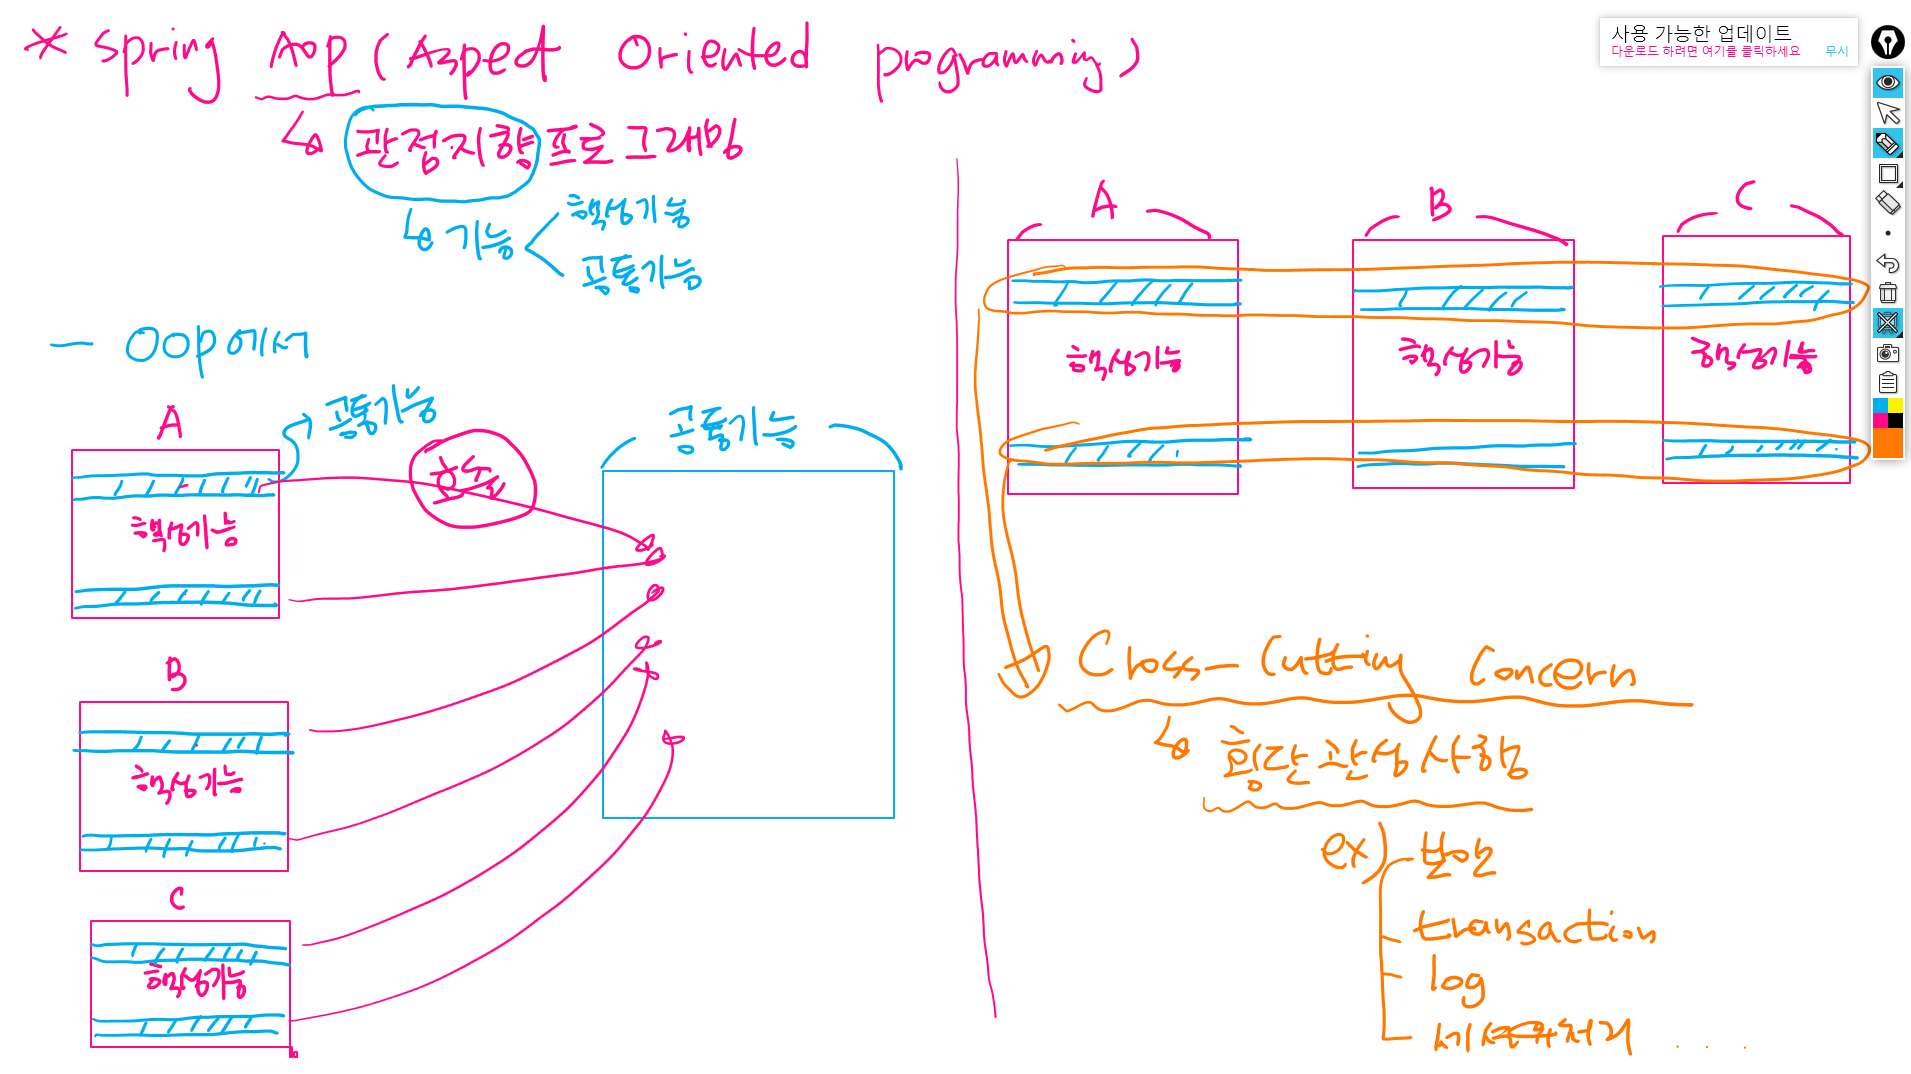 * Spring AOP (Aspect Oriented programming)
↳ 관점지향 프로그래밍
↳ 기능 < 핵심기능
공통기능
- OOP에서
A
공통기능
핵심기능
호출
공통기능
B
핵심기능
C
핵심기능
A B C
핵심기능 핵심기능 핵심기능
Cross-Cutting Concern
↳ 횡단 관심 사항
ex) 보안
transaction
log
처리 ....
사용 가능한 업데이트
다운로드 하려면 여기를 클릭하세요 무시